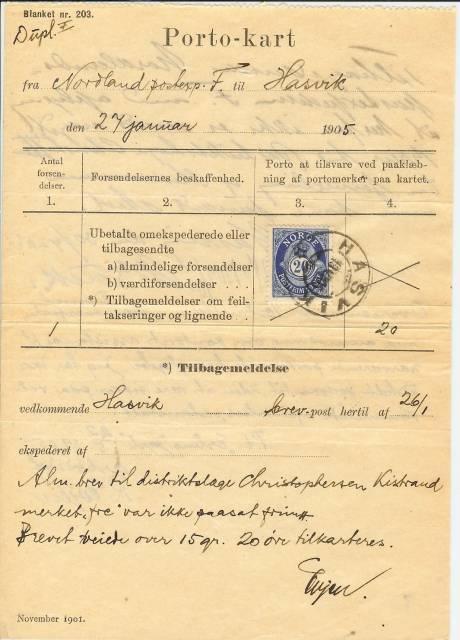 Blanket nr. 203.
Dupl.
Porto-kart
fra Nordland postexp. F. til Hasvik
den 27 januar 1905.
Antal forsen-delser. Forsendelsernes beskaffenhed. Porto at tilsvare ved paaklæb-ning af portomerker paa kartet.
1. 2. 3. 4.
Ubetalte omekspederede eller
tilbagesendte
a) almindelige forsendelser
b) værdiforsendelser . . .
*) Tilbagemeldelser om feil-
takseringer og lignende . .
1 20
NORGE
20
POSTFRIM
HASVIK
*) Tilbagemeldelse
vedkommende Hasvik brev-post hertil af 26/1
ekspederet af
Alm. brev til distriktslæge Christophersen Kistrand
merket "fre" var ikke paasat frim.
Brevet veiede over 15 gr. 20 öre tilkarteres.
November 1901.